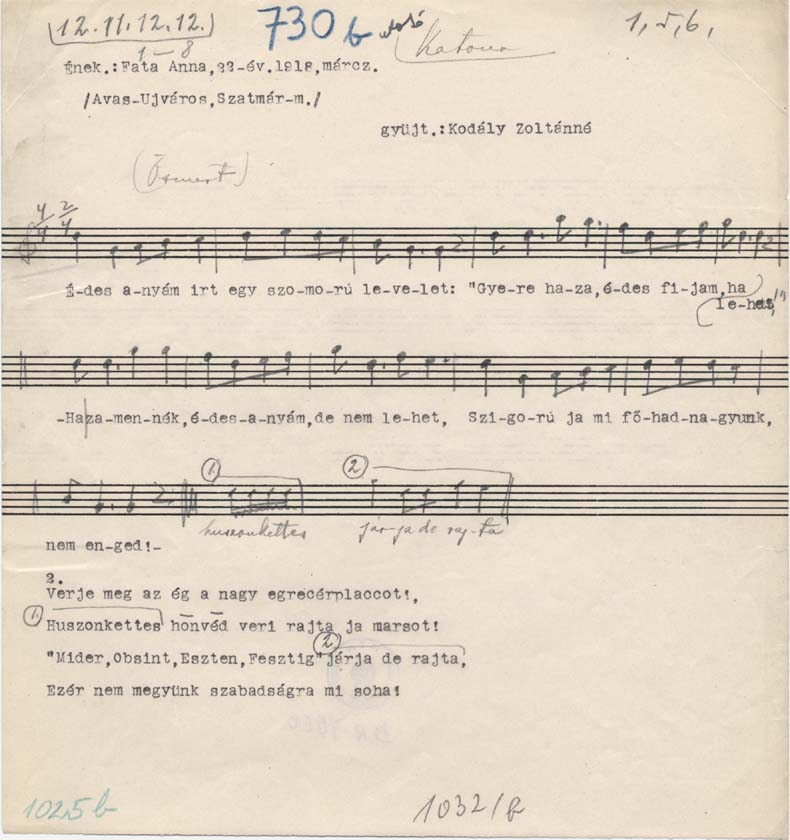 12.11.12.12. 730 b utolsó Katona 1, 5, 6,
1-8
Ének.:Fata Anna,22-év.1918,márcz.
/Avas-Ujváros,Szatmár-m./
gyüjt.:Kodály Zoltánné
(Ösmert)
4/4 2/4
É-des a-nyám irt egy szo-mo-rú le-ve-let: "Gye-re ha-za,é-des fi-jam,ha
le-het,!"
-Haza-men-nék,é-des-a-nyám,de nem le-het, Szi-go-rú ja mi fő-had-na-gyunk,
1. 2.
huszonkettes jár-ja de raj-ta
nem en-ged!-
2.
Verje meg az ég a nagy egrecérplaccot!,
1. Huszonkettes honvéd veri rajta ja marsot!
"Mider,Obsint,Eszten,Fesztig" 2. járja de rajta,
Ezér nem megyünk szabadságra mi soha!
1025 b 1032/b